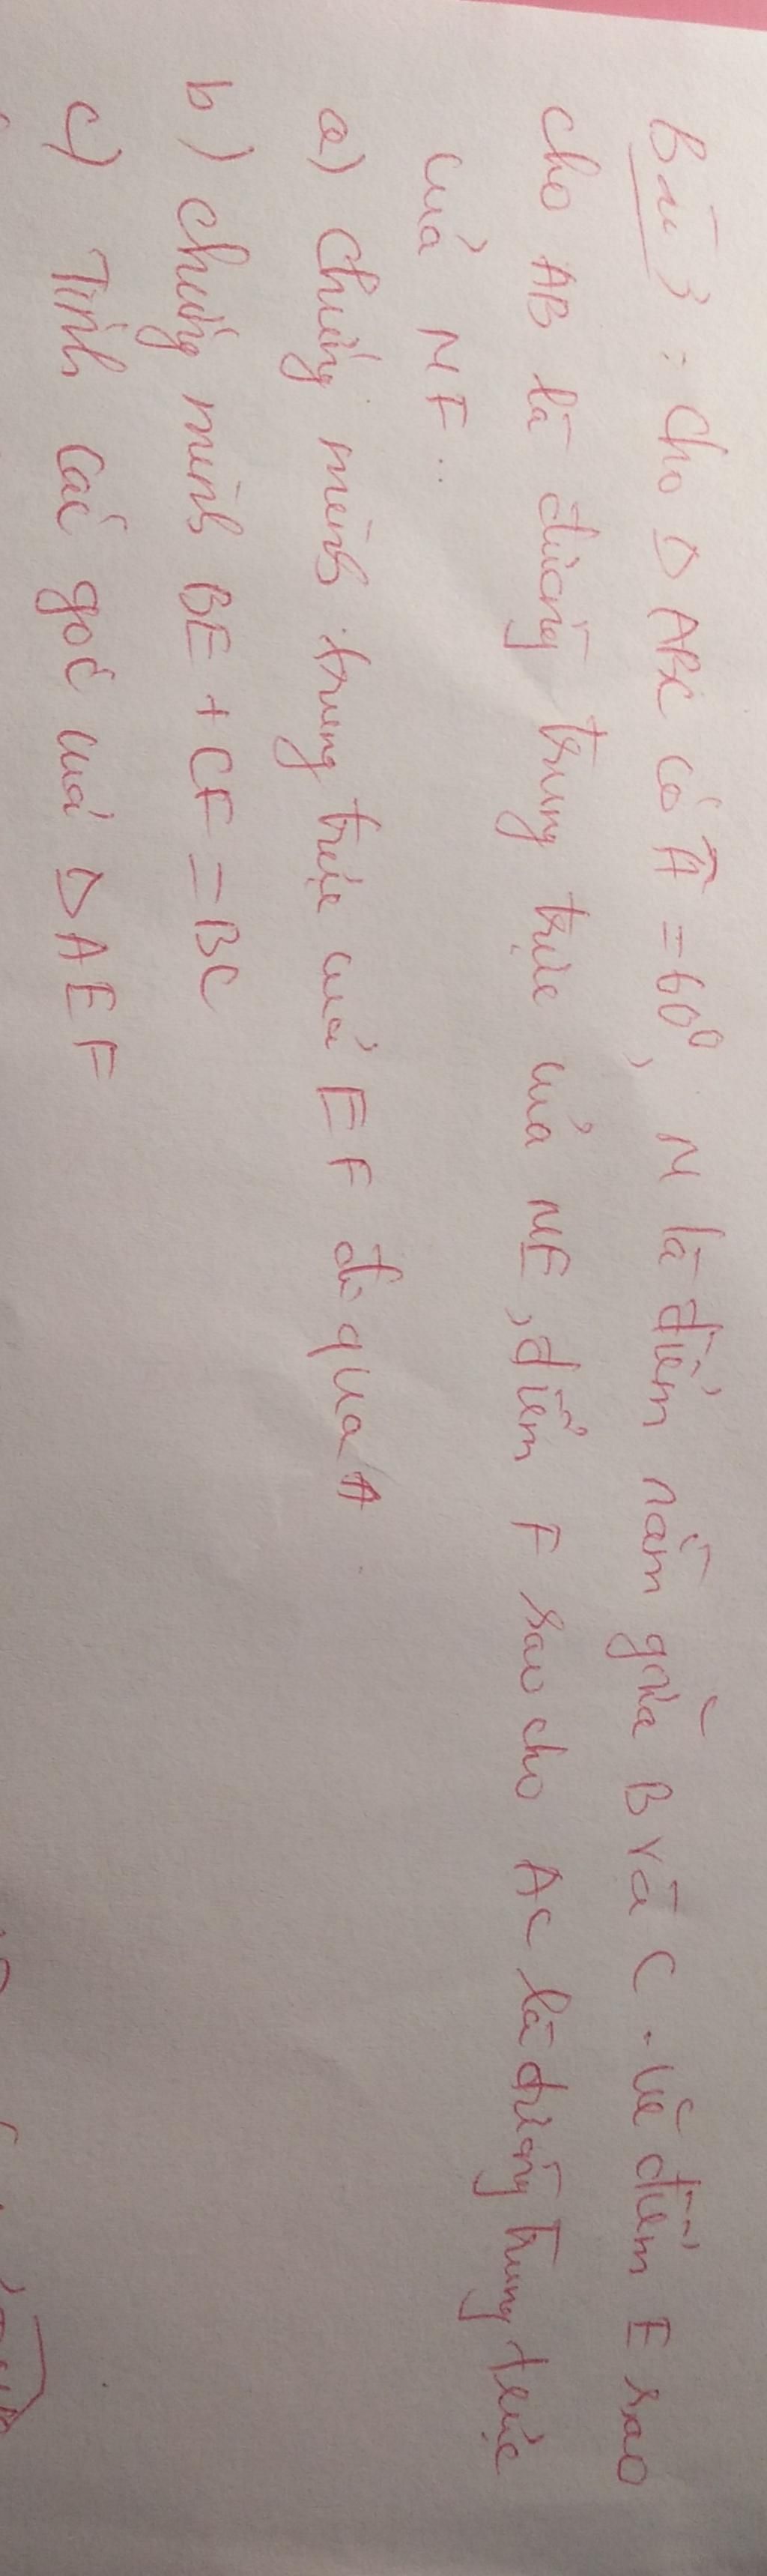 Bài 3 : Cho Δ ABC có Â = 60⁰, N là điểm nằm giữa B và C . Vẽ điểm E sao
cho AB là đường trung trực của NE, điểm F sao cho AC là đường trung trực
của NF .
a) Chứng minh trung trực của EF đi qua A .
b) Chứng minh BE + CF = BC
c) Tính các góc của Δ AEF